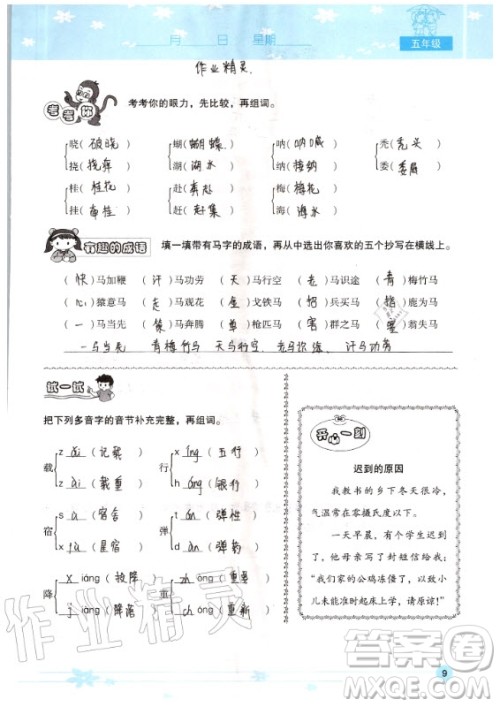 月 日 星期
五年级
作业精灵
考考你 考考你的眼力，先比较，再组词。
晓(破晓) 蝴(蝴蝶) 呐(呐喊) 秃(秃头)
挠(挠痒) 湖(湖水) 纳(接纳) 委(委屈)
桂(桂花) 赴(奔赴) 梅(梅花)
挂(牵挂) 赶(赶集) 海(海水)
有趣的成语 填一填带有马字的成语，再从中选出你喜欢的五个抄写在横线上。
(快)马加鞭 (汗)马功劳 (天)马行空 (老)马识途 (青)梅竹马
(心)猿意马 (走)马观花 (金)戈铁马 (招)兵买马 (指)鹿为马
(一)马当先 (万)马奔腾 (单)枪匹马 (害)群之马 (塞)翁失马
一马当先 青梅竹马 天马行空 老马识途 汗马功劳
试一试
把下列多音字的音节补充完整，再组词。
载 zǎi (记载) 行 xíng (五行)
zài (载重) háng (银行)
宿 sù (宿舍) 弹 tán (弹性)
xiù (星宿) dàn (弹药)
降 xiáng (投降) 重 chóng (重叠)
jiàng (降落) zhòng (重新)
开心一刻
迟到的原因
我教书的乡下冬天很冷，
气温常在零摄氏度以下。
一天早晨，有个学生迟到
了。他母亲写了封短信给我：
“我们家的公鸡冻僵了，以致小
儿未能准时起床上学，请原谅！”
作业精灵
答案圈
MXQE.COM
9